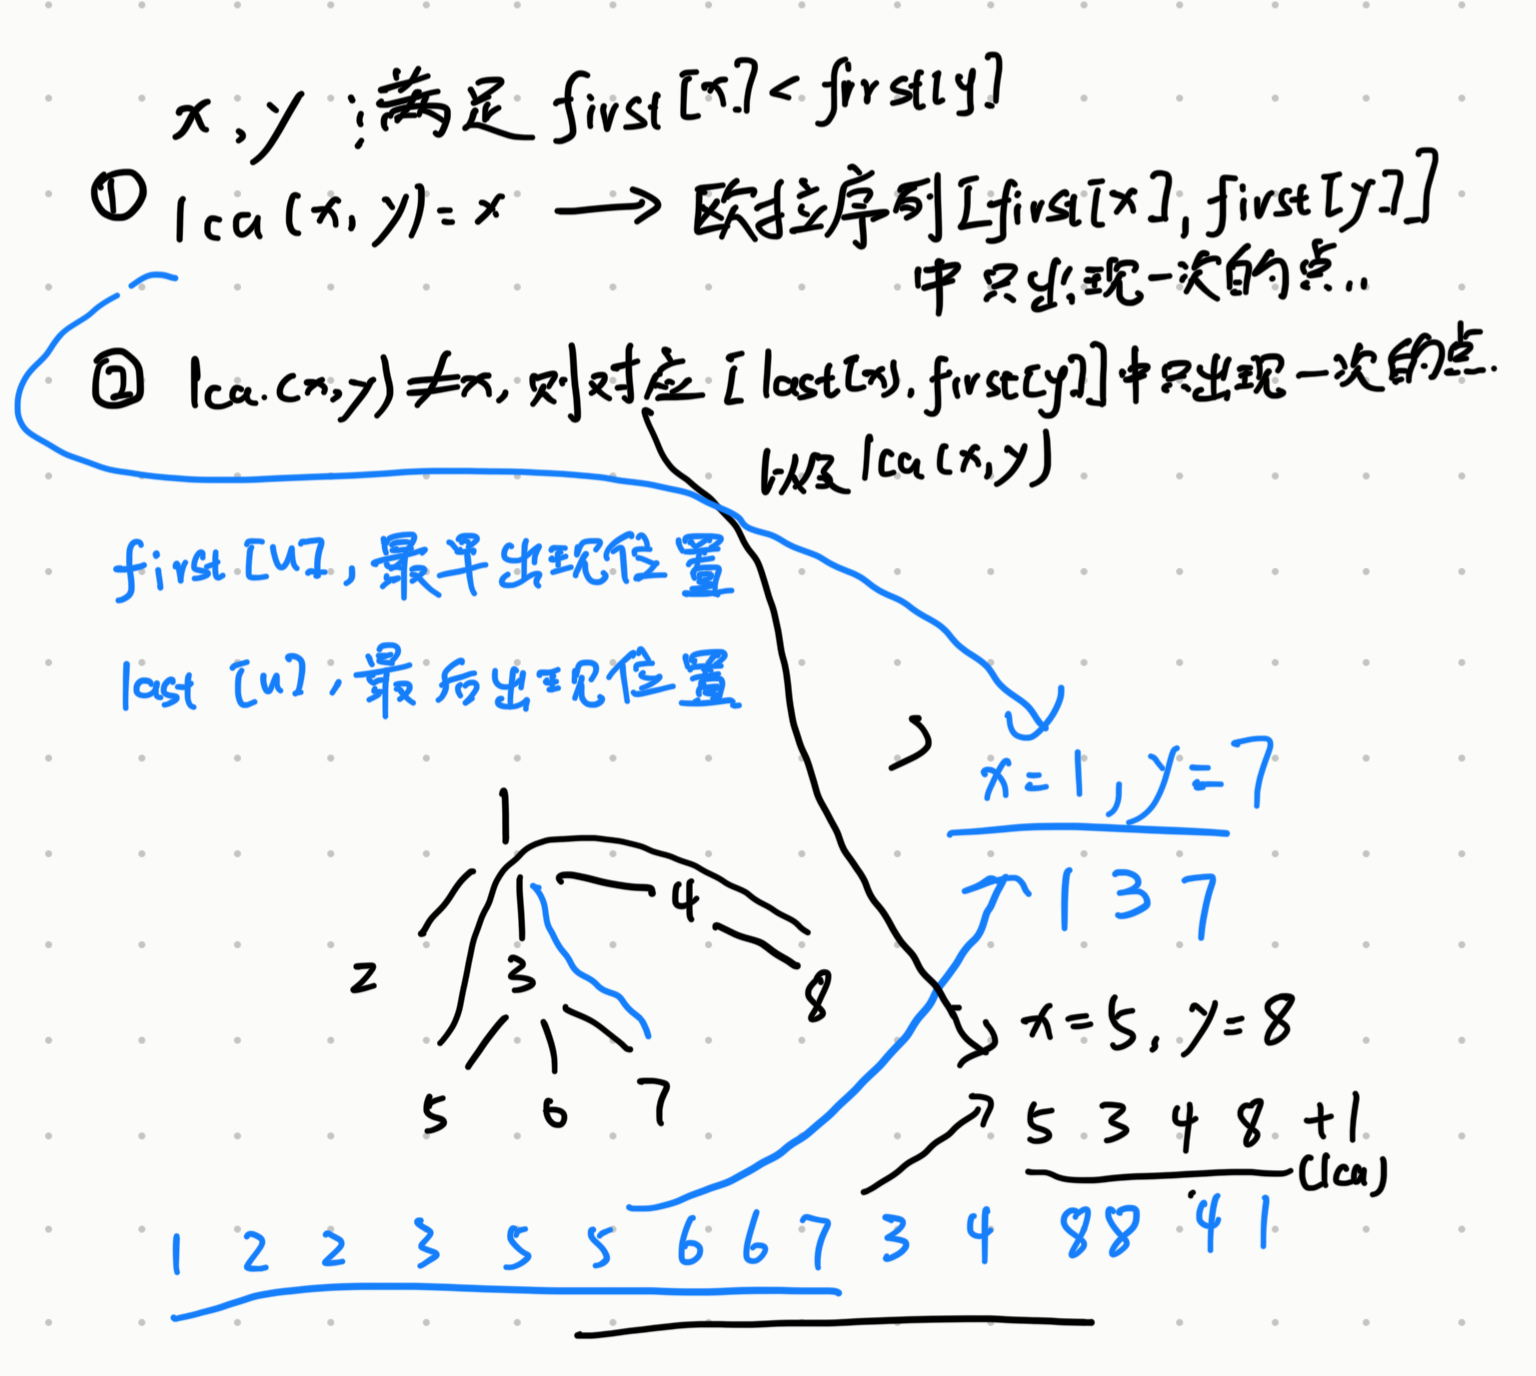 x,y 满足 first[x]<first[y]
① lca(x,y)=x → 欧拉序列[first[x],first[y]]
中只出现一次的点..
② lca.(x,y)≠x, 则对应[last[x).first[y]]中只出现一次的点.
以及lca(x,y)
first[u],最早出现位置
last [u],最后出现位置
x=1,y=7
1 3 7
1
4
2 3 8
x=5,y=8
5 6 7
5 3 4 8 +1
(lca)
1 2 2 3 5 5 6 6 7 3 4 8 8 4 1